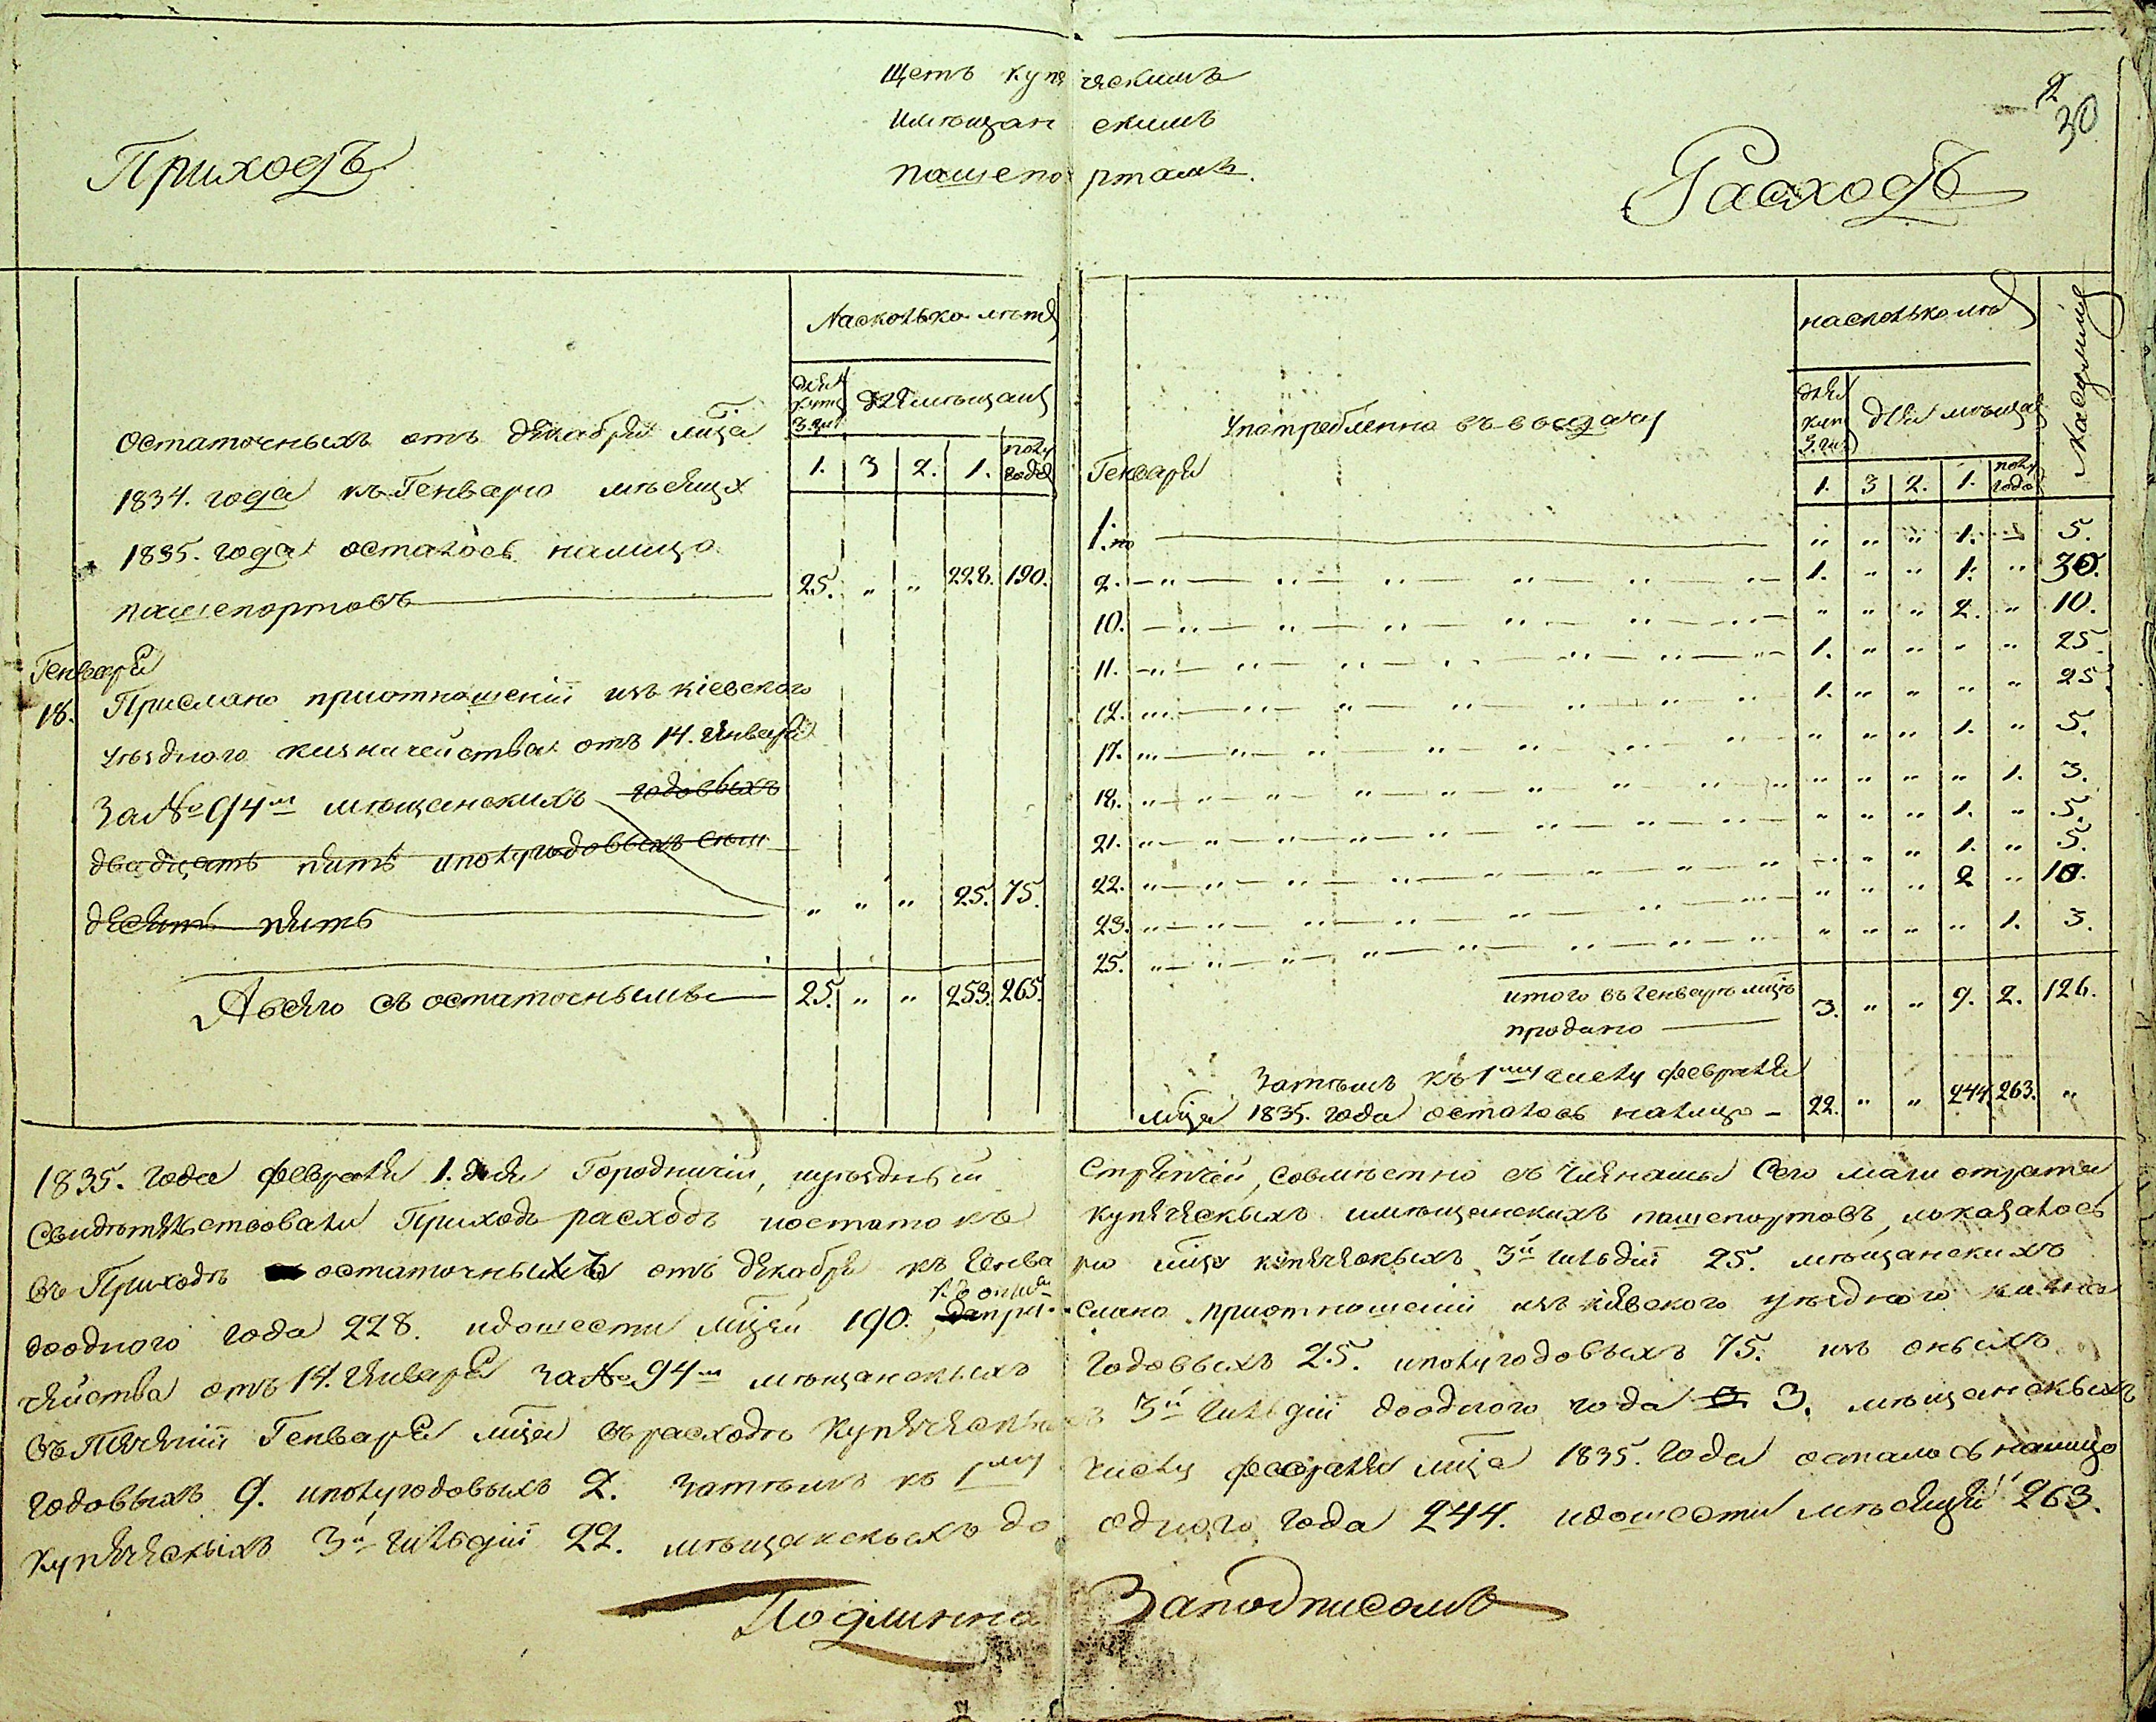 Щетъ купѣческимъ
имѣщанскимъ
пашепортамъ.
2
30
Приходъ
Расходъ
Насколько лѣтъ
для купц 3 ги
для мѣщанъ
1. 3 2. 1. полугода
Остаточныхъ отъ декабря мца
1834. года къ Генварю мѣсяцу
1835. года осталось налицо
пашепортовъ 25. „ „ 228. 190.
Генваря
18. Прислано приотношеніи изъ кіевского
уѣздного казначейства отъ 14. Января
За № 94м мѣщанскихъ годовыхъ
двадцать пять иполугодовыхъ семь
десятъ пять „ „ „ 25. 75.
Авсего съ остаточнымъ 25. „ „ 253. 265.
насколько лѣ
для куп 3. ги
для мѣщан
1. 3 2. 1. полугодо
На сумму
Употребленно въ выдачу
Генваря
1.го „ „ „ 1. „ 5.
2. 1. „ „ 1. „ 30.
10. „ „ „ 2. „ 10.
11. 1. „ „ „ „ 25.
12. 1. „ „ „ „ 25.
17. „ „ „ 1. „ 5.
18. „ „ „ „ 1. 3.
21. „ „ „ 1. „ 5.
22. „ „ „ 1. „ 5.
23. „ „ „ 2 „ 10.
25. „ „ „ „ 1. 3.
итого въ генварѣ мцѣ
продано 3. „ „ 9. 2. 126.
Затѣмъ къ 1му числу февраля
мца 1835. года осталось налицо - 22. „ „ 244. 263. „
1835. года февраля 1. дня Городничій, иуѣздный Стряпчій, совмѣстно съ
Свидѣтельствовали Приходъ расходъ иостатокъ купѣческыхъ имѣщанскихъ пашепортовъ, иоказалось
въ Приходѣ остаточныхъ отъ декабря къ Генварю мцу купѣческыхъ 3й гильдіи 25. мѣщанскихъ
доодного года 228. идошести мцей 190. прислано приотношеніи изъ кіевского уѣздного казна
чейства отъ 14. Января за № 94м мѣщанскыхъ годовыхъ 25. иполугодовыхъ 75. изъ оныхъ
въ Теченіи Генваря мца въ расходѣ Купѣческихъ 3й гильдіи доодного года 3. мѣщанскыхъ
годовыхъ 9. иполугодовыхъ 2. затѣмъ къ 1му числу февраля мца 1835. года осталось налицо
купѣческихъ 3й гильдіи 22. мѣщанскыхъ до одного года 244. идошести мѣсяцей 263.
Подлинно Заподписомъ